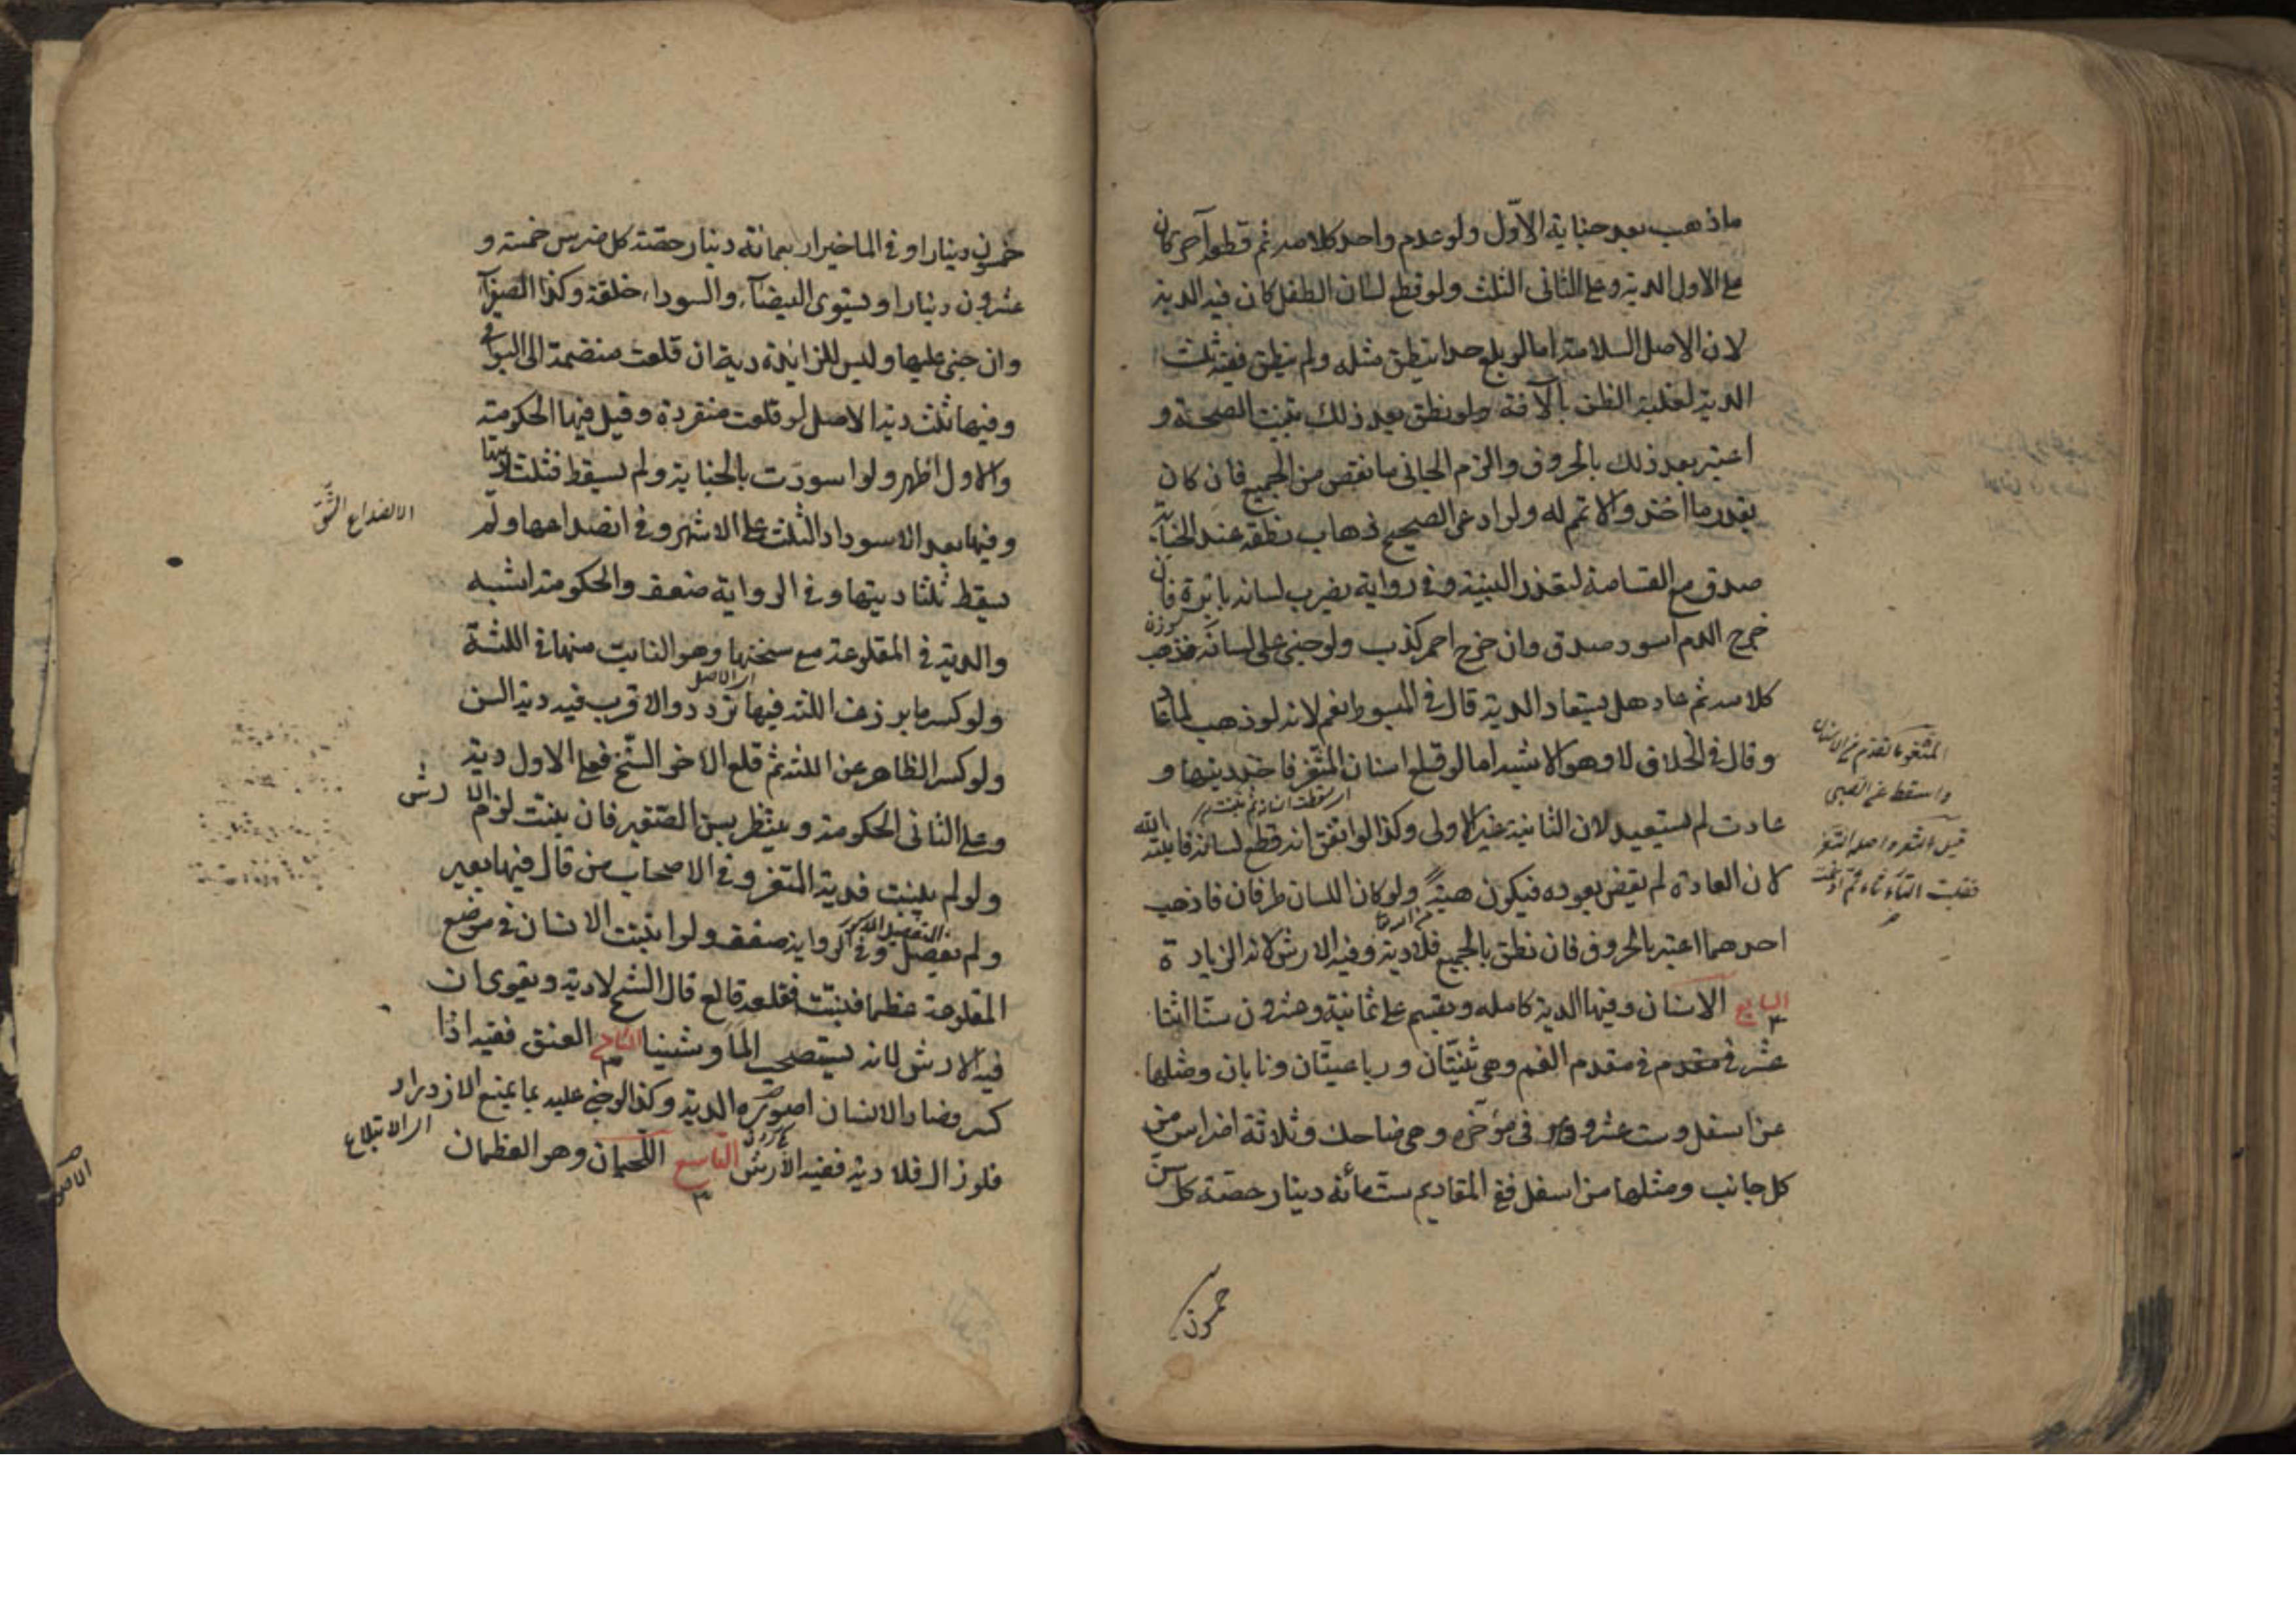 ماذهب بعد جناية الاوّل ولو عدم واحد كلامه ثم قطعه آخر كان
على الاول الدية وعلى الثانى الثلث ولو قطع لسان الطفل كان فيه الدية
لان الاصل السلامة اما لو بلغ حدا ينطق مثله ولم ينطق ففيه ثلث
الدية لغلبة الظن بالآفة ولو نطق بعد ذلك تبينت الصحة و
اعتبر بعد ذلك بالحروف والزم الجانى ما نقص من الجميع فان كان
بقدر ما اخذ والا تمم له ولو ادعى الصحيح ذهاب نطقه عند الجناية
صدق مع القسامة لتعذر البينة وفى رواية يضرب لسانه بابرة فان
خرج الدم اسود صدق وان خرج احمر كذب ولو جنى على لسانه فذهب
كلامه ثم عاد هل يستعاد الدية قال فى المبسوط نعم لانه لو ذهب لما عاد
وقال فى الخلاف لا وهو الاشبه اما لو قلع اسنان المثغر فاخذ ديتها و
عادت لم يستعيد لان الثانية غير الاولى وكذا لو اتفق انه قطع لسانه فانبته الله
لان العادة لم يقض بعوده فيكون هبةً ولو كان اللسان طرفان فاذهب
احدهما اعتبر بالحروف فان نطق بالجميع فلا دية وفيه الارش لانه الزيادة
السابع الاسنان وفيها الدية كاملة ويقسم على ثمانية وعشرون سنا اثنا
عشر فى مقدم الفم وهى ثنيتان ورباعيتان ونابان ومثلها
من اسفل وست عشر فى مؤخره وهى ضاحك وثلاثة اضراس من
كل جانب ومثلها من اسفل ففى المقاديم ستمائة دينار حصة كل سن
خمسون
المثغر
واسقط
خمسون دينارا وفى الماخير اربعمائة دينار حصة كل ضرس خمسة و
عشرون دينارا ويستوى البيضاء والسوداء خلقة وكذا الصفراء
وان جنى عليها وليس للزائدة دية ان قلعت منضمة الى البواقى
وفيها ثلث دية الاصل لو قلعت منفردة وقيل فيها الحكومة
والاول اظهر ولو اسودت بالجناية ولم يسقط فثلثا ديتها
وفيها بعد الاسوداد الثلث على الاشهر وفى انصداعها ولم
يسقط ثلثا ديتها وفى الرواية ضعف والحكومة اشبه
والدية فى المقلوعة مع سنخها وهو النابت منها فى اللثة
ولو كسر ما برز عن اللثة فيها تردد والاقرب فيه دية السن
ولو كسر الظاهر عن اللثة ثم قلع الاخر السنخ فعلى الاول دية
وعلى الثانى الحكومة وينتظر بسن الصغير فان ينبت لزم الارش
ولو لم ينبت فدية المثغر وفى الاصحاب من قال فيها بعير
ولم يفصل وفى الرواية ضعف ولو انبتت الانسان فى موضع
المقلوعة عظما فنبتت فقلعه قالع قال الشيخ لا دية ويقوى ان
فيه الارش لانه يستصحب الما وشينا الثامن العنق ففيه اذا
كسر فصار الانسان اصور الدية وكذا لو جنى عليه بما يمنع الازدراد
فلو زال فلا دية ففيه الارش التاسع اللحيان وهو العظمان
الانصداع الشق
اى الابتلاع